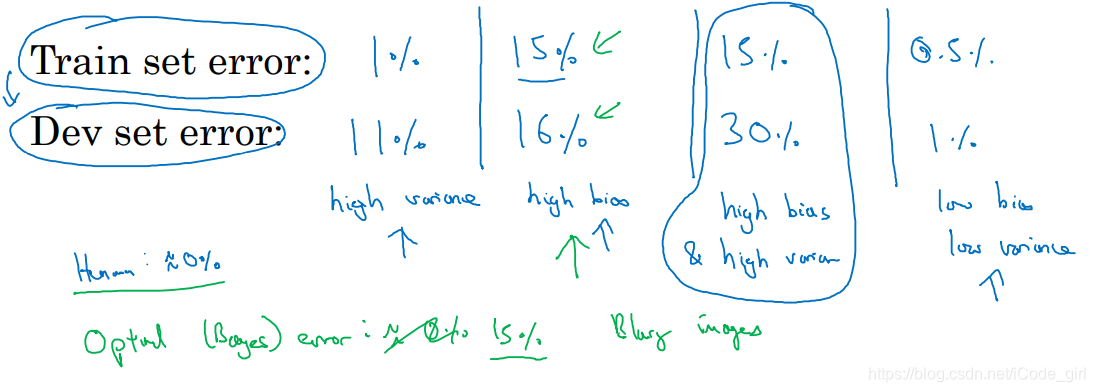 Train set error: 1% 15% 15% 0.5%
Dev set error: 11% 16% 30% 1%
high variance high bias high bias low bias
& high varian low variance
Human: ≈0%
Optimal (Bayes) error: ≈ 0% 15% Blurry images
https://blog.csdn.net/iCode_girl